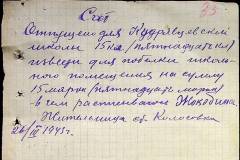 33
Счет
Отпущено для Кудрявцевской
школы 15 кг (пятнадцать кг)
извести для побелки школь-
ного помещения на сумму
15 марок (пятнадцать марок)
в чем расписываюсь
Жительница с. Колосовка
26/III 1943 г.